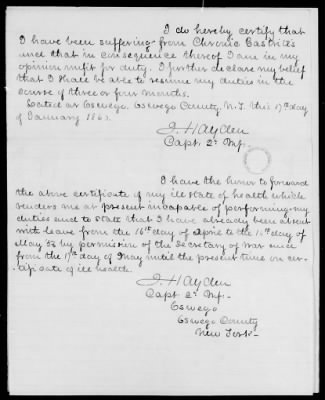 I do hereby certify that
I have been suffering from Chronic Gastritis
and that in consequence thereof I am in my
opinion unfit for duty. I further declare my belief
that I shall be able to resume my duties in the
course of three or four months.
Dated at Oswego, Oswego County, N.Y. this 17th day
of January 186
J. Hayden
Capt 2d Inf.
I have the honor to forward
the above certificate of my ill state of health which
renders me at present incapable of performing my
duties and to state that I have already been absent
with leave from the 16th day of April to the day of
May by permission of the Secretary of War and
from the 17th day of May until the present time on cer-
tificate of ill health.
J. Hayden
Capt 2d Inf.
Oswego
Oswego County
New York